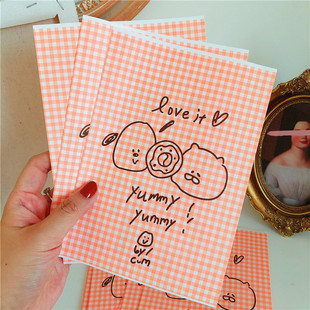 love it ♡
yummy!
yummy!!
by!
cum